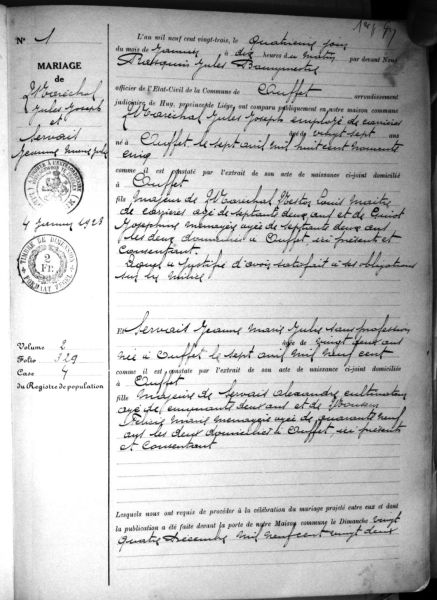 1er f
N° 1
MARIAGE
de
Maréchal
Jules Joseph
et
Servais
Jeanne Marie Julie
4 Janvier 1923
TIMBRE DE DIMENSION
2
FR.
Volume 2
Folio 329
Case 4
du Registre de population
L'an mil neuf cent vingt-trois, le Quatrième jour
du mois de Janvier, à dix heures du matin par devant Nous
Jules
officier de l'Etat-Civil de la Commune de Ouffet arrondissement
judiciaire de Huy, province de Liége, ont comparu publiquement en notre maison commune
Maréchal Jules Joseph employé de carrières
âgé de vingt sept ans
né à Ouffet le sept avril mil huit cent nonante
cinq
comme il est constaté par l'extrait de son acte de naissance ci-joint domicilié
à Ouffet
fils majeur de Maréchal Victor Louis Maître
de carrières agé de septante deux ans et de
Joséphine ménagère agée de septante deux ans
les deux domiciliés à Ouffet, ici présents et
Consentant.
Lequel a justifié d'avoir satisfait à ses obligations
sur la milice
Et Servais Jeanne Marie Julie sans profession
âgée de vingt deux ans
née à Ouffet le sept avril mil neuf cent
comme il est constaté par l'extrait de son acte de naissance ci-joint domiciliée
à Ouffet
fille majeure de Servais Alexandre cultivateur
agé de cinquante deux ans et de
Marie ménagère agée de quarante neuf
ans les deux domiciliés à Ouffet, ici présents
et Consentant
Lesquels nous ont requis de procéder à la célébration du mariage projeté entre eux et dont
la publication a été faite devant la porte de notre Maison commune le Dimanche vingt
quatre Décembre mil neuf cent vingt deux